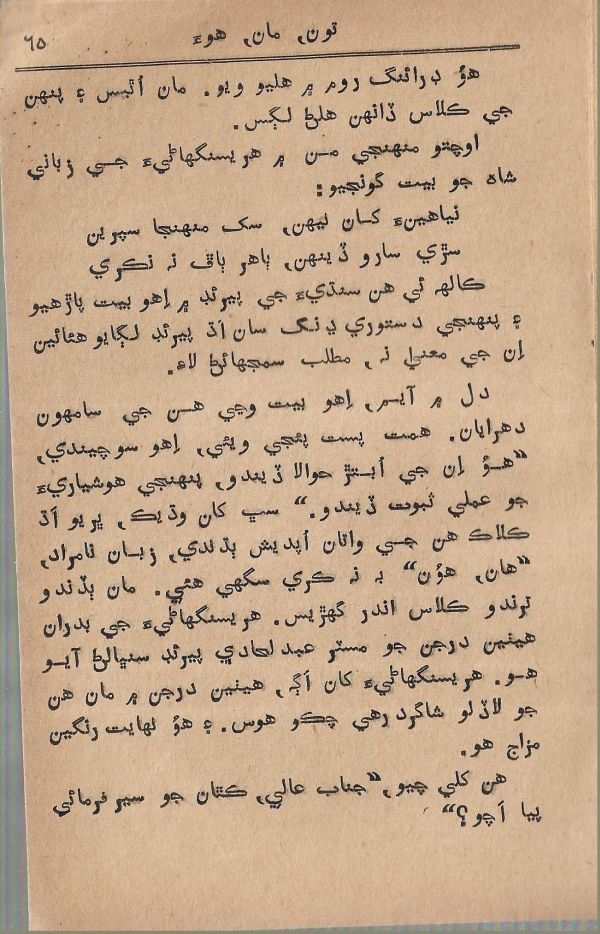 تون, مان, هوءَ ٦٥
هوُ ڊرائنگ روم ۾ هليو ويو. مان اُٿيس ۽ پنهن
جي ڪلاس ڏانهن هلڻ لڳس.
اوچتو منهنجي من ۾ هريسنگهاڻيءَ جي زباني
شاه جو بيت گونجيو:
نياهينءَ کان نيهن, سک منهنجا سپرين
سڙي سارو ڏينهن, ٻاهر ٻاڦ نہ نڪري
ڪالهہ ئي هن سنڌيءَ جي پيرئڊ ۾ اِهو بيت پاڙهيو
۽ پنهنجي دستوري ڍنگ سان اَڌ پيرئڊ لڳايو هئائين
اِن جي معنيٰ نہ, مطلب سمجهائڻ لاءِ.
دل ۾ آيم, اِهو بيت وڃي هن جي سامهون
دهرايان. همت پست پئجي ويئي, اِهو سوچيندي,
”هوُ اِن جي اُبتڙ حوالا ڏيندو, پنهنجي هوشياريءَ
جو عملي ثبوت ڏيندو.“ سڀ کان وڌيڪ, ڀريو اَڌ
ڪلاڪ هن جي واتان اُپديش ٻڌندي, زبان نامراد,
”هان, هوُن“ بہ نہ ڪري سگهي هئي. مان ٻڏندو
ترندو ڪلاس اندر گهڙيس. هريسنگهاڻيءَ جي بدران
هيٺين درجن جو مسٽر عبدلهادي پيرئڊ سنڀالڻ آيو
هو. هريسنگهاڻيءَ کان اَڳہ, هيٺين درجن ۾ مان هن
جو لاڏلو شاگرد رهي چڪو هوس. ۽ هوُ نهايت رنگين
مزاج هو.
هن کلي چيو, ”جناب عالي, ڪٿان جو سير فرمائي
پيا اَچو؟“